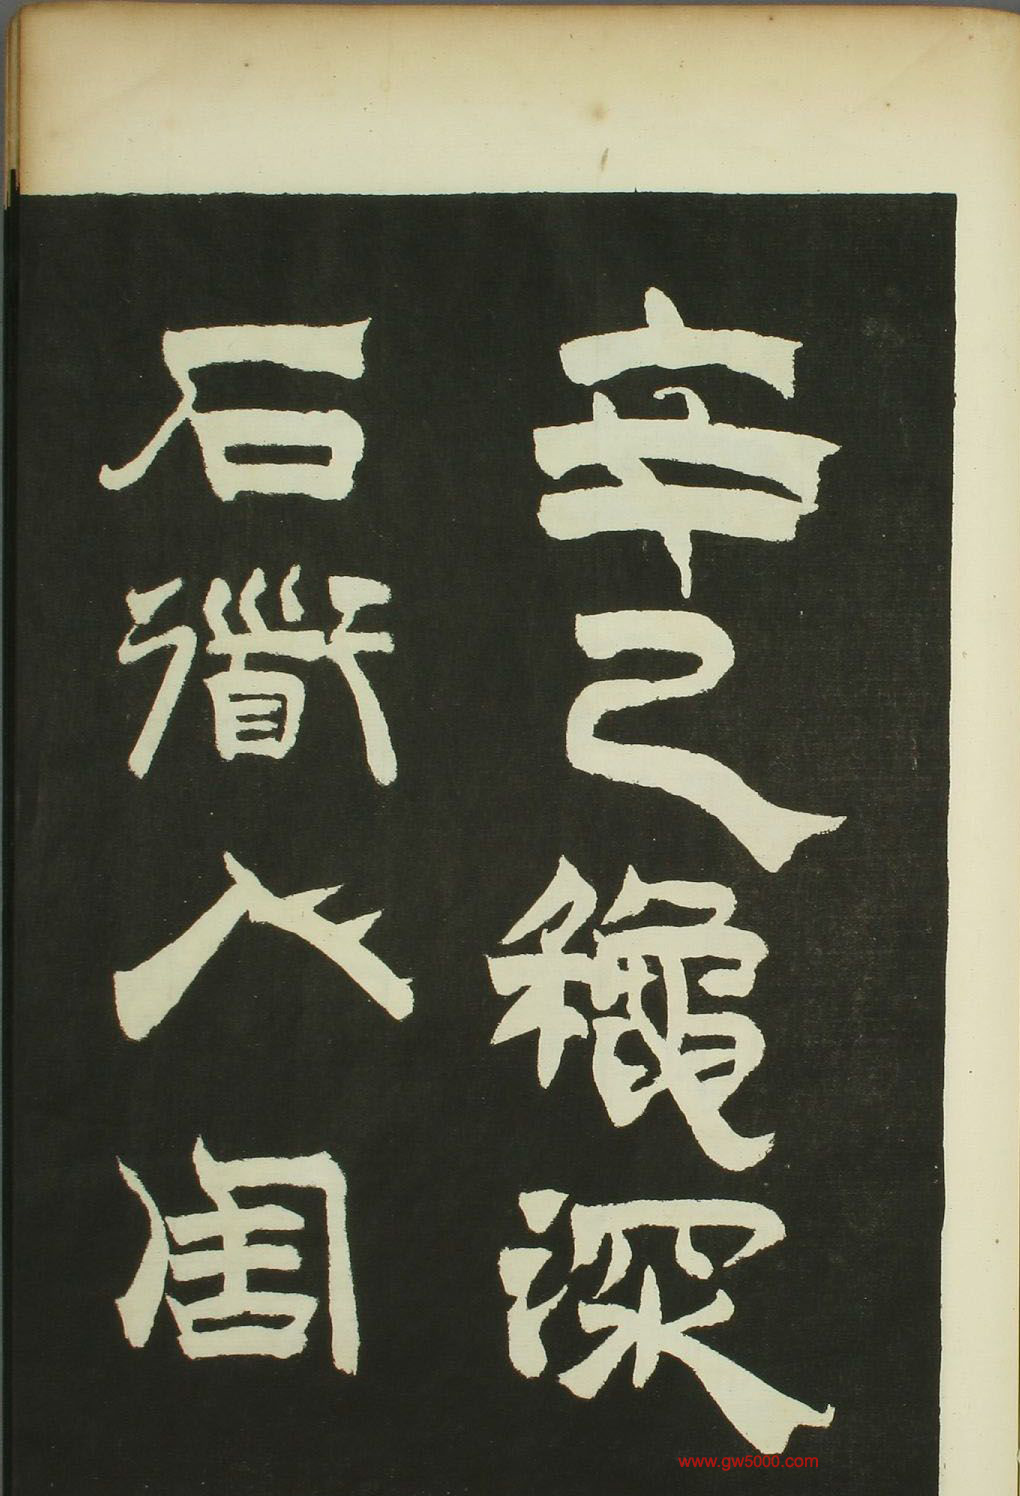 辛巳龝深
石衜人周
www.gw5000.com